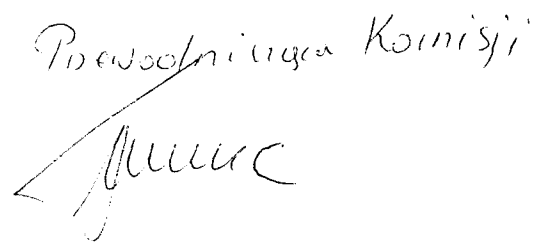 Przewodnicząca Komisji